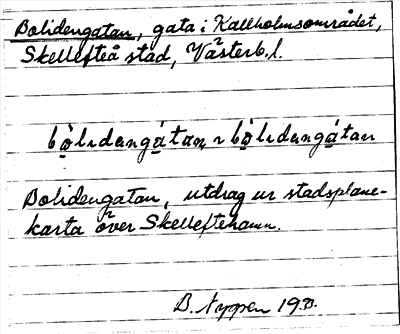 Bolidengatan, gata i Kallholmsområdet,
Skellefteå stad, Västerb. l.
bòlıdengátan, bòlıdengátan
Bolidengatan, utdrag ur stadsplane-
karta över Skelleftehamn.
B. Nyppen 19